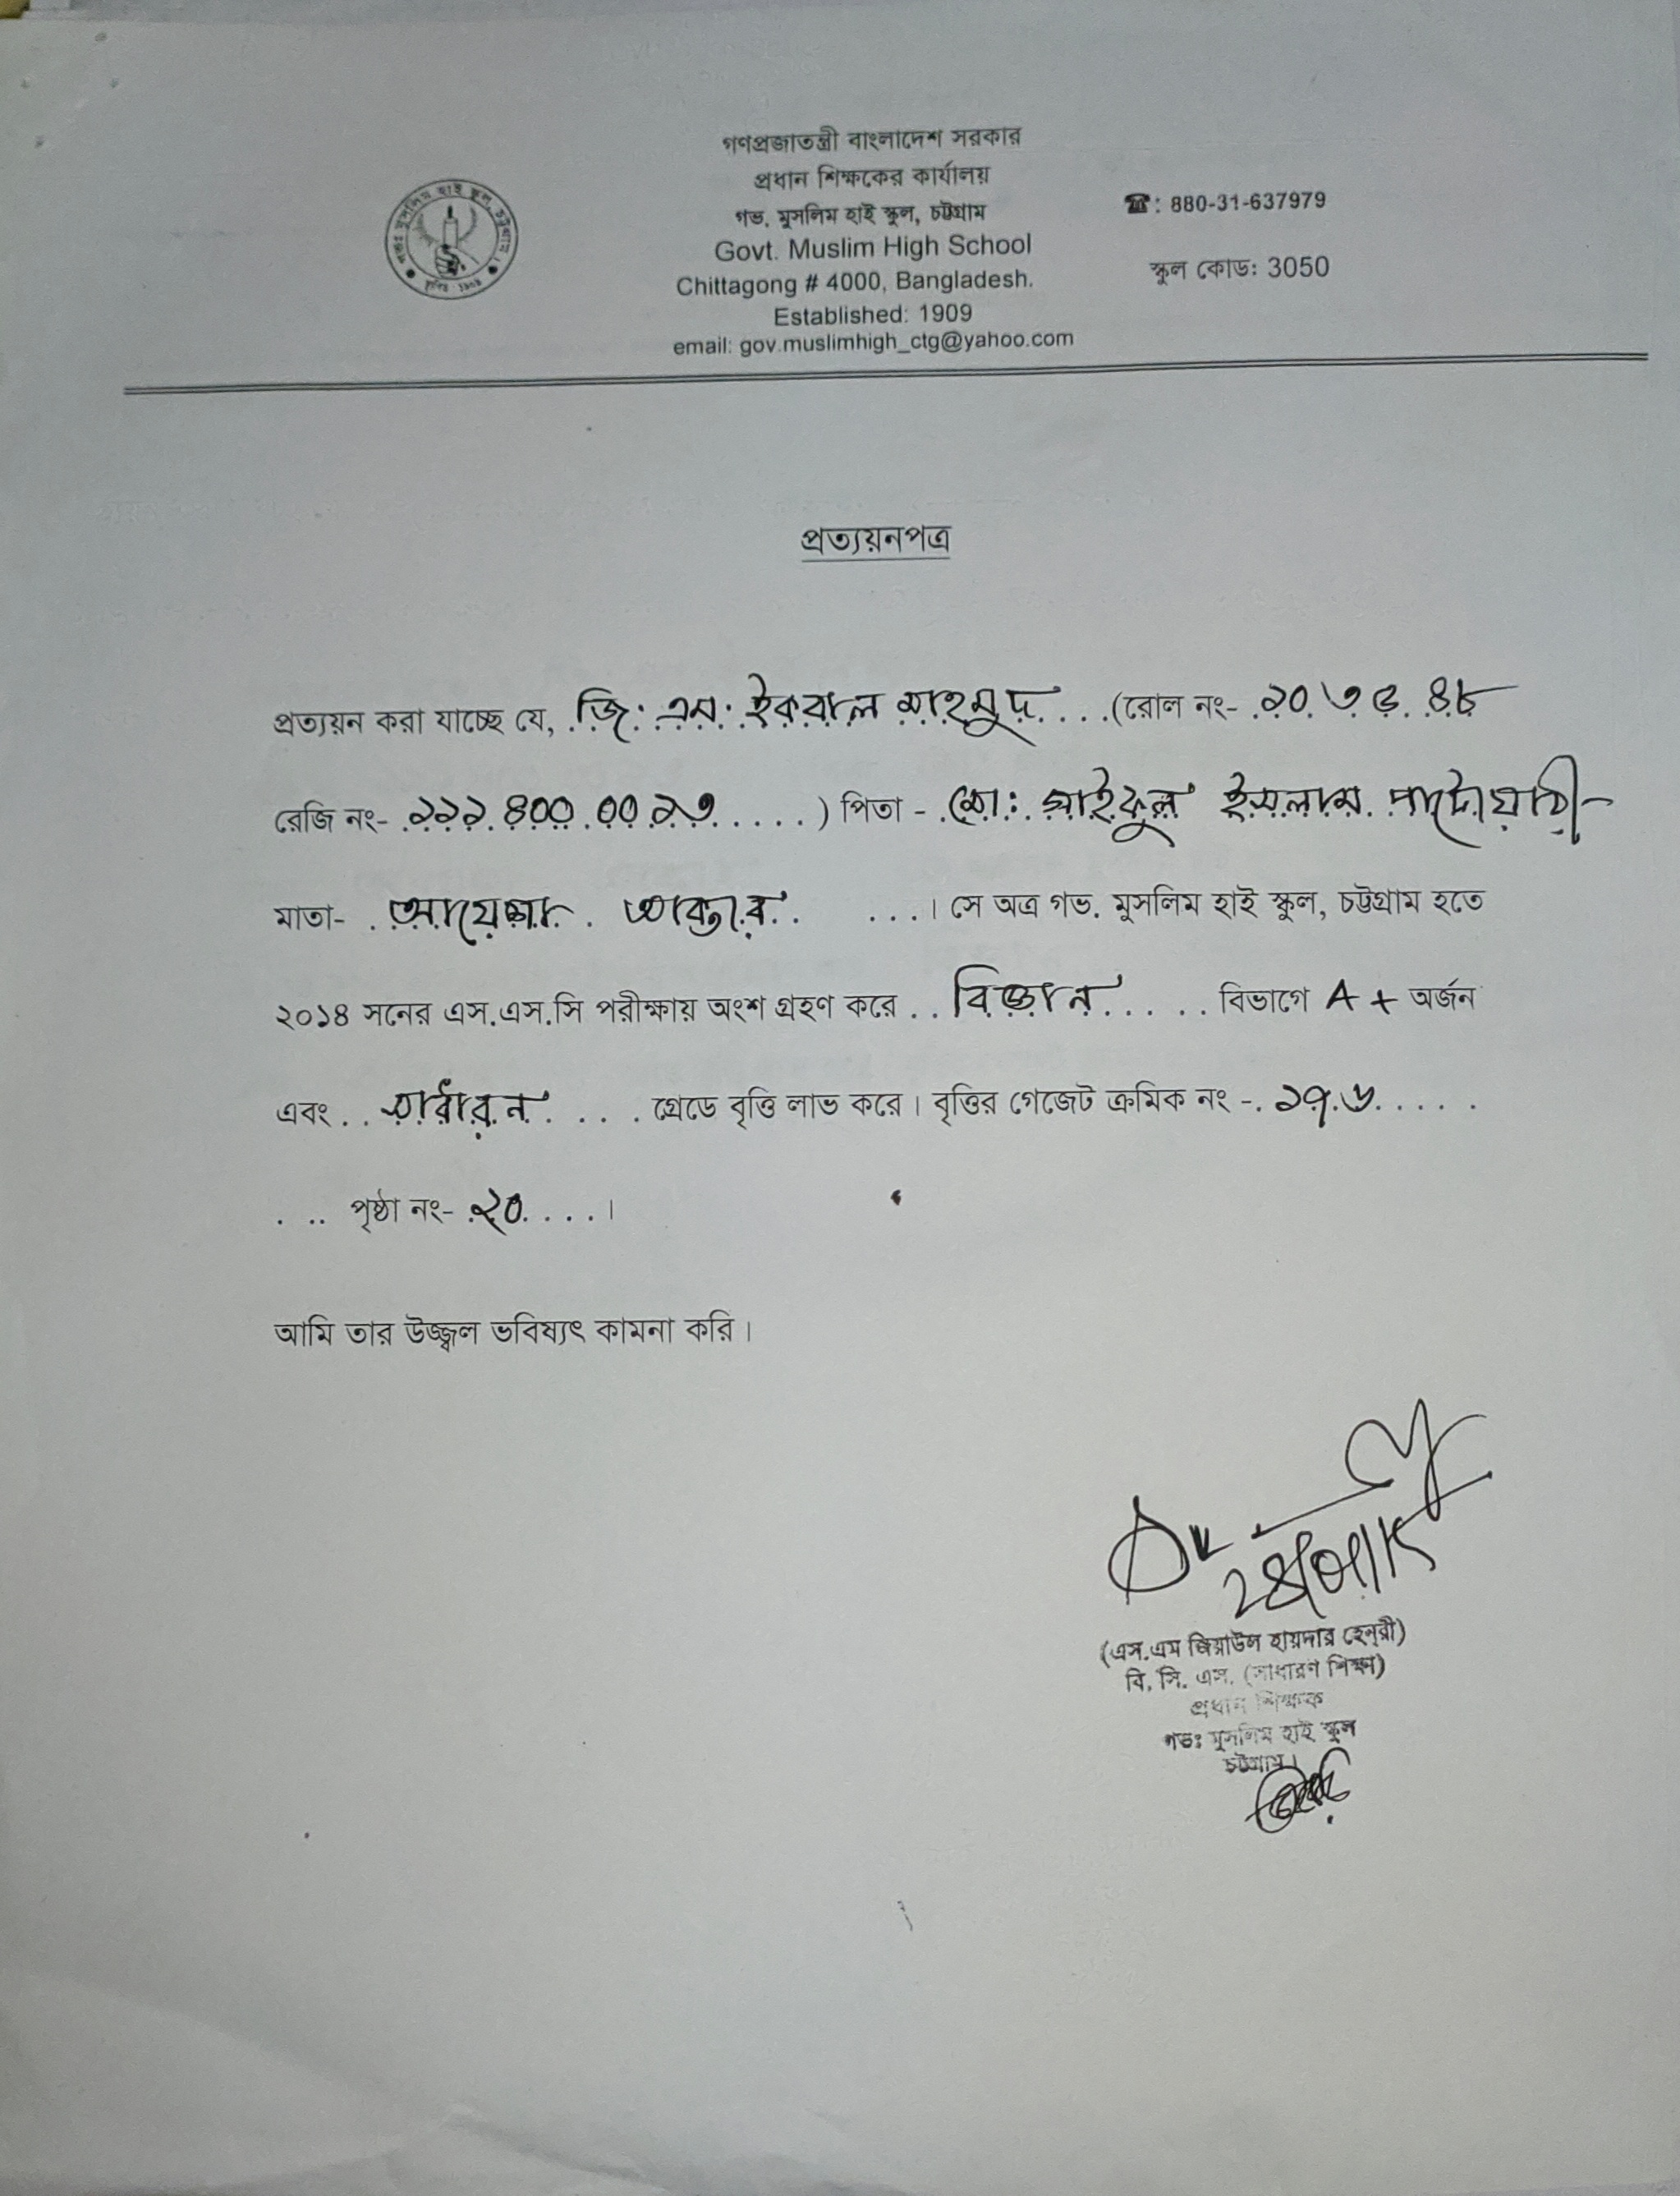 গণপ্রজাতন্ত্রী বাংলাদেশ সরকার
প্রধান শিক্ষকের কার্যালয়
গভ. মুসলিম হাই স্কুল, চট্টগ্রাম
Govt. Muslim High School
Chittagong # 4000, Bangladesh.
Established: 1909
email: gov.muslimhigh_ctg@yahoo.com
☎: 880-31-637979
স্কুল কোড: 3050
প্রত্যয়নপত্র
প্রত্যয়ন করা যাচ্ছে যে, জি. এম. ইকবাল মাহমুদ (রোল নং-
রেজি নং- ) পিতা - মো: সাইফুল ইসলাম পাটোয়ারী
মাতা- আয়েশা আক্তার । সে অত্র গভ. মুসলিম হাই স্কুল, চট্টগ্রাম হতে
২০১৪ সনের এস.এস.সি পরীক্ষায় অংশ গ্রহণ করে . . বিজ্ঞান . . . . . বিভাগে A + অর্জন
এবং . . . . . . গ্রেডে বৃত্তি লাভ করে। বৃত্তির গেজেট ক্রমিক নং -. ১৭৬ . . . . .
. .. পৃষ্ঠা নং- ২০ . . . . ।
আমি তার উজ্জ্বল ভবিষ্যৎ কামনা করি।
(এস.এম জিয়াউল হায়দার হেনরী)
বি. সি. এস. (সাধারণ শিক্ষা)
প্রধান শিক্ষক
গভঃ মুসলিম হাই স্কুল
চট্টগ্রাম।